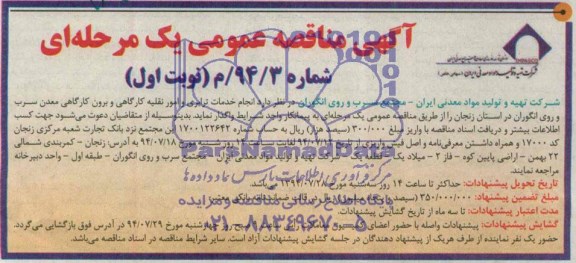 آگهی مناقصه عمومی یک مرحله‌ای
شماره ۹۴/۳/م (نوبت اول)
شرکت تهیه و تولید مواد معدنی ایران
شرکت تهیه و تولید مواد معدنی ایران - مجتمع سرب و روی انگوران در نظر دارد انجام خدمات ترابری و امور نقلیه کارگاهی و برون کارگاهی معدن سرب
و روی انگوران در استان زنجان را از طریق مناقصه عمومی یک مرحله‌ای به پیمانکار واجد شرایط واگذار نماید. بدینوسیله از متقاضیان دعوت می‌شود جهت کسب
اطلاعات بیشتر و دریافت اسناد مناقصه با واریز مبلغ ۳۰۰/۰۰۰ (سیصد هزار) ریال به حساب شماره این مجتمع نزد بانک تجارت شعبه مرکزی زنجان
کد ۱۷۰۰۰ و همراه داشتن معرفی‌نامه و اصل فیش واریزی از تاریخ لغایت ساعت ۱۴ روز مورخ ۹۴/۰۷/۱۸ به آدرس زنجان - کمربندی شمالی
۲۲ بهمن - اراضی پایین کوه - فاز ۲ - میلاد یک - قطعه شرکت تهیه و تولید مواد معدنی ایران - مجتمع سرب و روی انگوران - طبقه اول - واحد دبیرخانه
مراجعه نمایند.
تاریخ تحویل پیشنهادات: حداکثر تا ساعت ۱۴ روز سه‌شنبه مورخ ۱۳۹۴/۰۷/۲۸ می‌باشد.
مبلغ تضمین پیشنهاد: ۳۵۰/۰۰۰/۰۰۰ (سیصد و
مدت اعتبار پیشنهادات: تا سه ماه از تاریخ گشایش پیشنهادات.
گشایش پیشنهادات: پیشنهادات واصله با حضور اعضای صبح روز چهارشنبه مورخ ۹۴/۰۷/۲۹ در آدرس فوق بازگشایی می‌گردد.
حضور یک نفر نماینده از طرف هریک از پیشنهاد دهندگان در جلسه گشایش پیشنهادات آزاد است. سایر شرایط مناقصه در اسناد مناقصه می‌باشد.
مرکز فرآوری اطلاعات پارس نماد داده‌ها
پایگاه اطلاع رسانی مناقصه و مزایده
۰۲۱-۸۸۳۴۹۶۷۰-۵